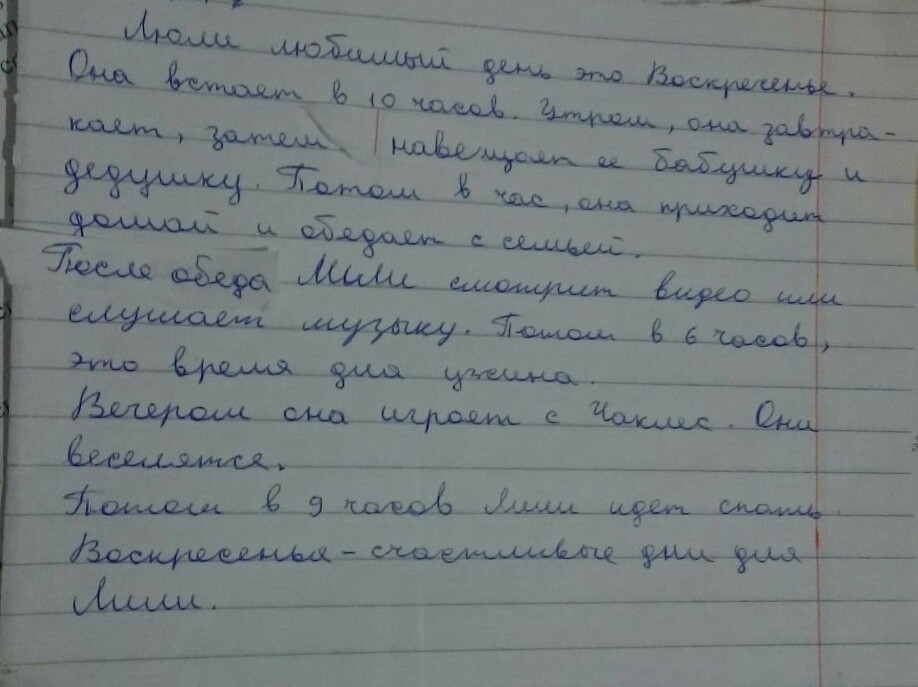 Люли любимый день это Воскресенье.
Она встает в 10 часов. Утром, она завтра-
кает, затем навещает ее бабушку и
дедушку. Потом в час, она приходит
домой и обедает с семьей.
После обеда Лили смотрит видео или
слушает музыку. Потом в 6 часов,
это время для ужина.
Вечером она играет с Чаклес. Они
веселятся.
Потом в 9 часов Лили идет спать.
Воскресенья - счастливые дни для
Лили.